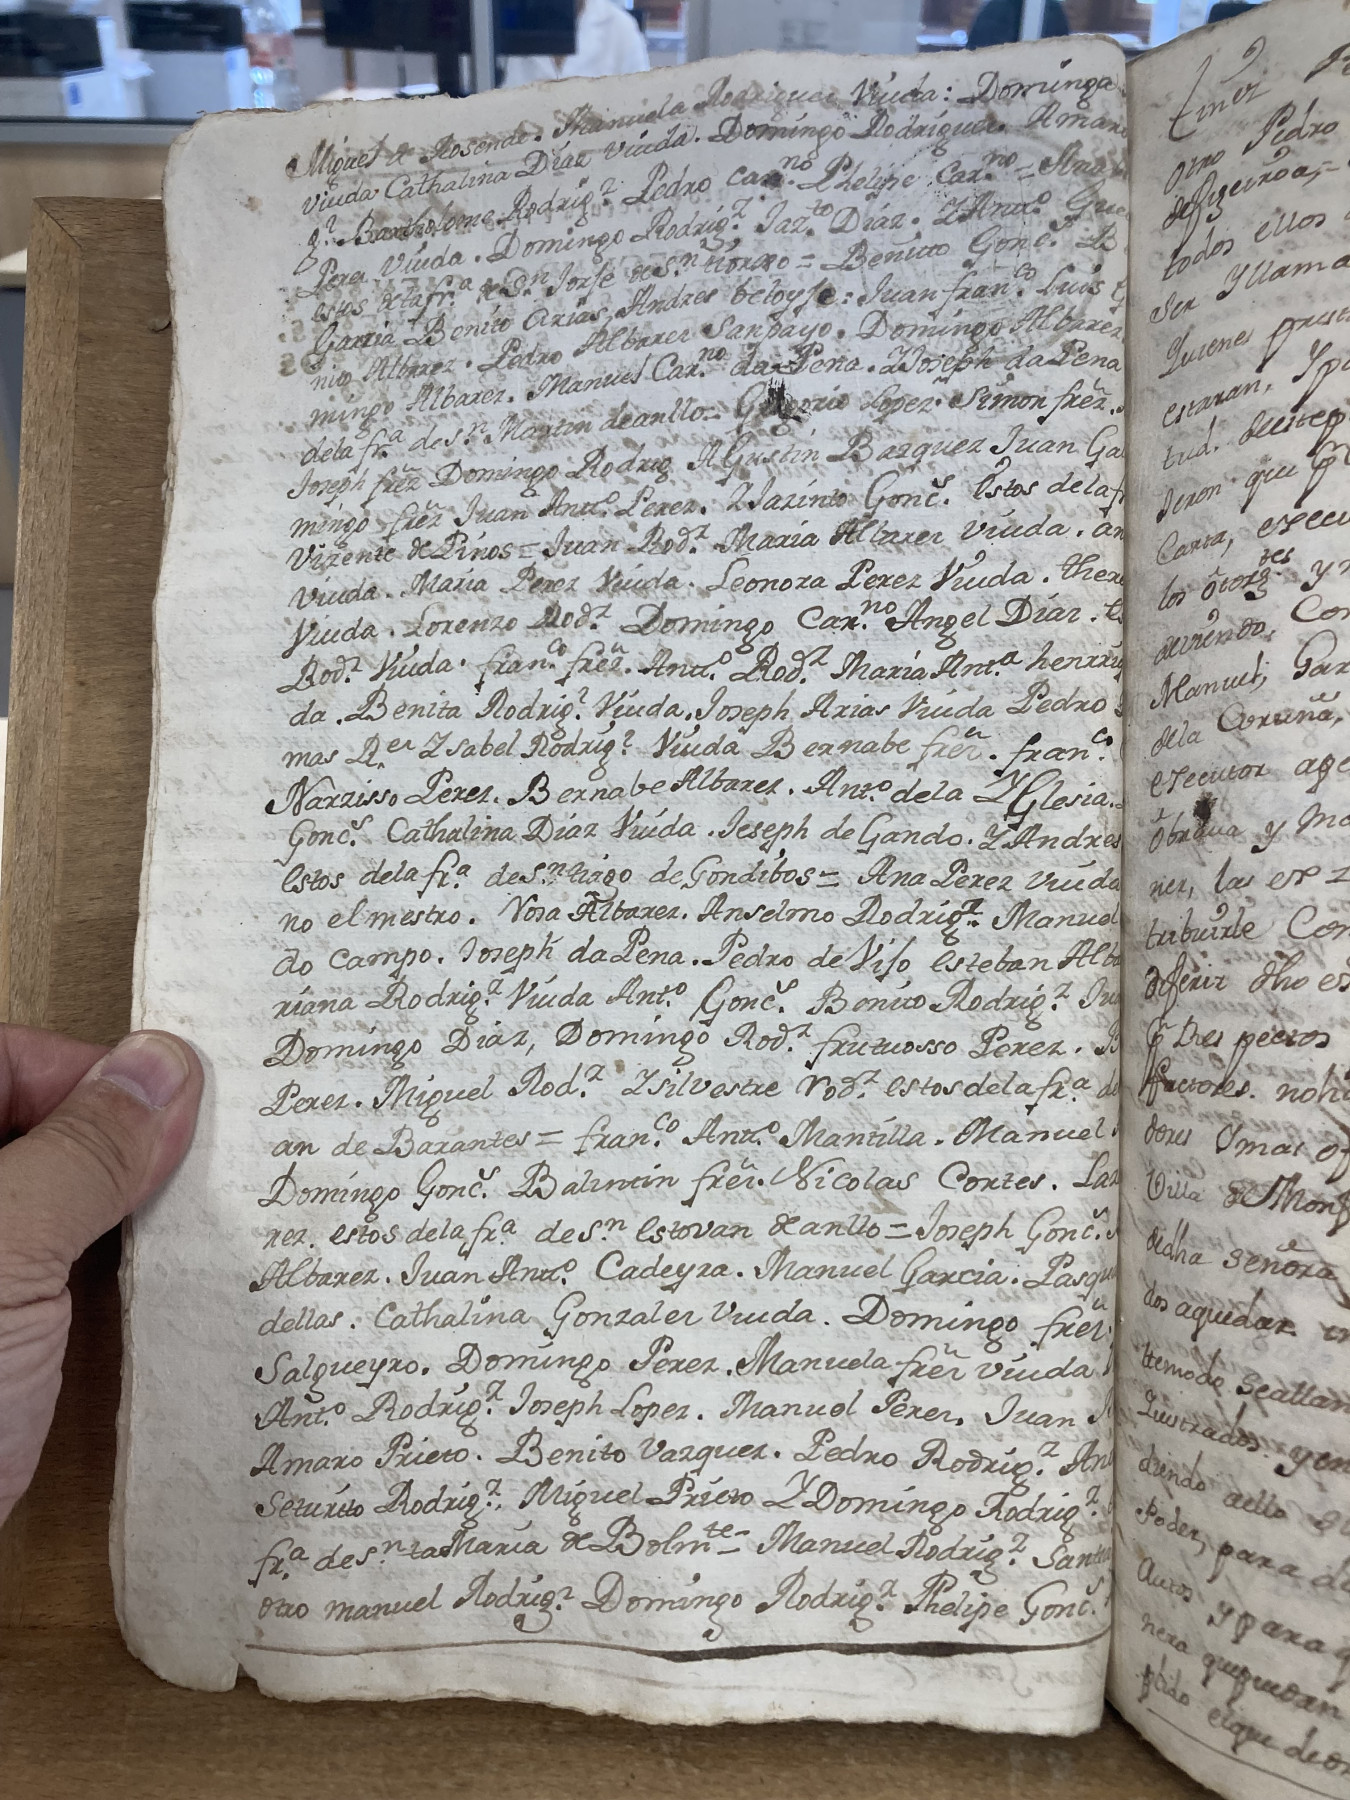 Miguel de Rosende. Manuela Rodriguez Viuda: Dominga
viuda Cathalina Diaz Viuda. Domingo Rodriguez. Amaro
Bartholome Rodrig.z Pedro Car.no Phelipe Car.no = Ana
Perez Viuda. Domingo Rodrig.z Jaz.to Diaz. Z Ant.o
estos dela fr.a de S.n Jorje de S.n = Benitto Gonc.s
Garzia Benito Arias, Andres beloyse: Juan fran.co Luis
nito Albarez. Pedro Albarez Sanpayo. Domingo Albarez
mingo Albarez. Manuel Car.no da Pena. Z Joseph da Pena
dela fr.a de S.n Martin de anllo = Gregorio Lopez. Simon frez.
Joseph frez Domingo Rodrig AGustin Bazquez Juan Ga
mingo frez Juan Ant.o Perez. Z Jazinto Gonc.s estos dela fr
Vizente de Pinos = Juan Rod.z Maria Albarez viuda. an
Viuda. Maria Perez Viuda. Leonora Perez Viuda. there
Viuda. Lorenzo Rod.z Domingo Car.no Angel Diaz.
Rod.z Viuda. fran.co frez. Ant.o Rod.z Maria Ant.a henrriq
da. Benita Rodrig.z Viuda. Joseph Arias Viuda Pedro
mas R.ez Zsabel Rodrig.z Viuda Bernabe frez. fran.co
Narzisso Perez. Bernabe Albarez. Ant.o dela YGlesia.
Gonc.s Cathalina Diaz Viuda. Joseph de Gando. Z Andres
estos dela fr.a de S.n tirso de Gondibos = Ana Perez viuda
no el mestro. Rosa Albarez. Anselmo Rodrig.z Manuel
do campo. Joseph da Pena. Pedro de Viso esteban Alba
riana Rodrig.z Viuda Ant.o Gonc.s Benito Rodrig.z Ju
Domingo Diaz, Domingo Rod.z frutuosso Perez. B
Perez. Miguel Rod.z Z silvestre rod.z estos dela fr.a de
an de Barantes = fran.co Ant.o Mantilla. Manuel
Domingo Gonc.s Balintin frez. Nicolas Cortes. Laz
rez. estos dela fr.a de S.n estovan de anllo = Joseph Gonc.s
Albarez. Juan Ant.o Cadeyra. Manuel Garcia. Pasqu
dellas. Cathalina Gonzalez Viuda. Domingo frez
Salgueyro. Domingo Perez. Manuela frez viuda
Ant.o Rodrig.z Joseph Lopez. Manuel Perez. Juan
Amaro Prieto. Benito Vazquez. Pedro Rodrig.z An
Seturito Rodrig.z. Miguel Prieto Z Domingo Rodrig.z
fr.a de S.n ta Maria de Bolm.te = Manuel Rodrig.z Santia
otro manuel Rodrig.z Domingo Rodrig.z Phelipe Gonc.s
otro Pedro
defigeiroa, =
todos ellos
Ser Yllama
Quienes prest
estaran, Y p
tud. deste p
dieron que
Carta, execu
los otorg.tes y
diziendo, Con
Manuel, Gar
dela Coruña,
executor age
obrava y Mo
nez, las
tribuirle Con
deferir dho es
tres pectos
factores. nohi
dores Umas of
Villa de Monf
dedha señora
dos aquedar
temodo Seallan
Zustrados. yen
diendo aello
Poder, para
autos Y para
nera quepuedan
pedido elque de